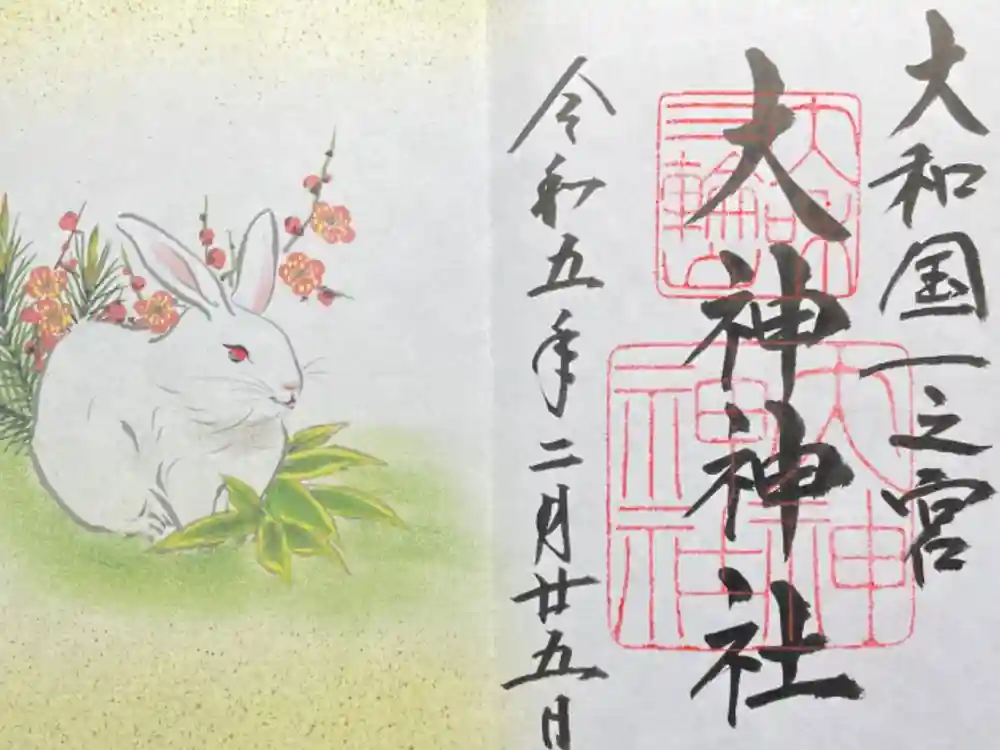 大和国一之宮
大神神社
令和五年二月廿五日
三輪山
大神神社